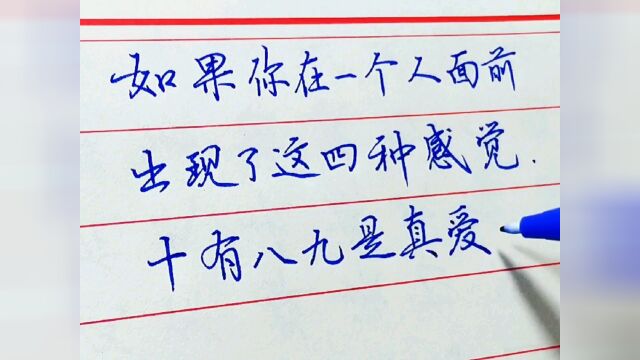 如果你在一个人面前
出现了这四种感觉.
十有八九是真爱